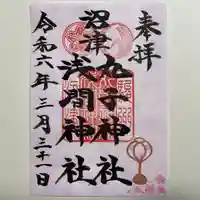 奉拝
沼津
丸子神社
浅間神社
令和六年三月三十一日